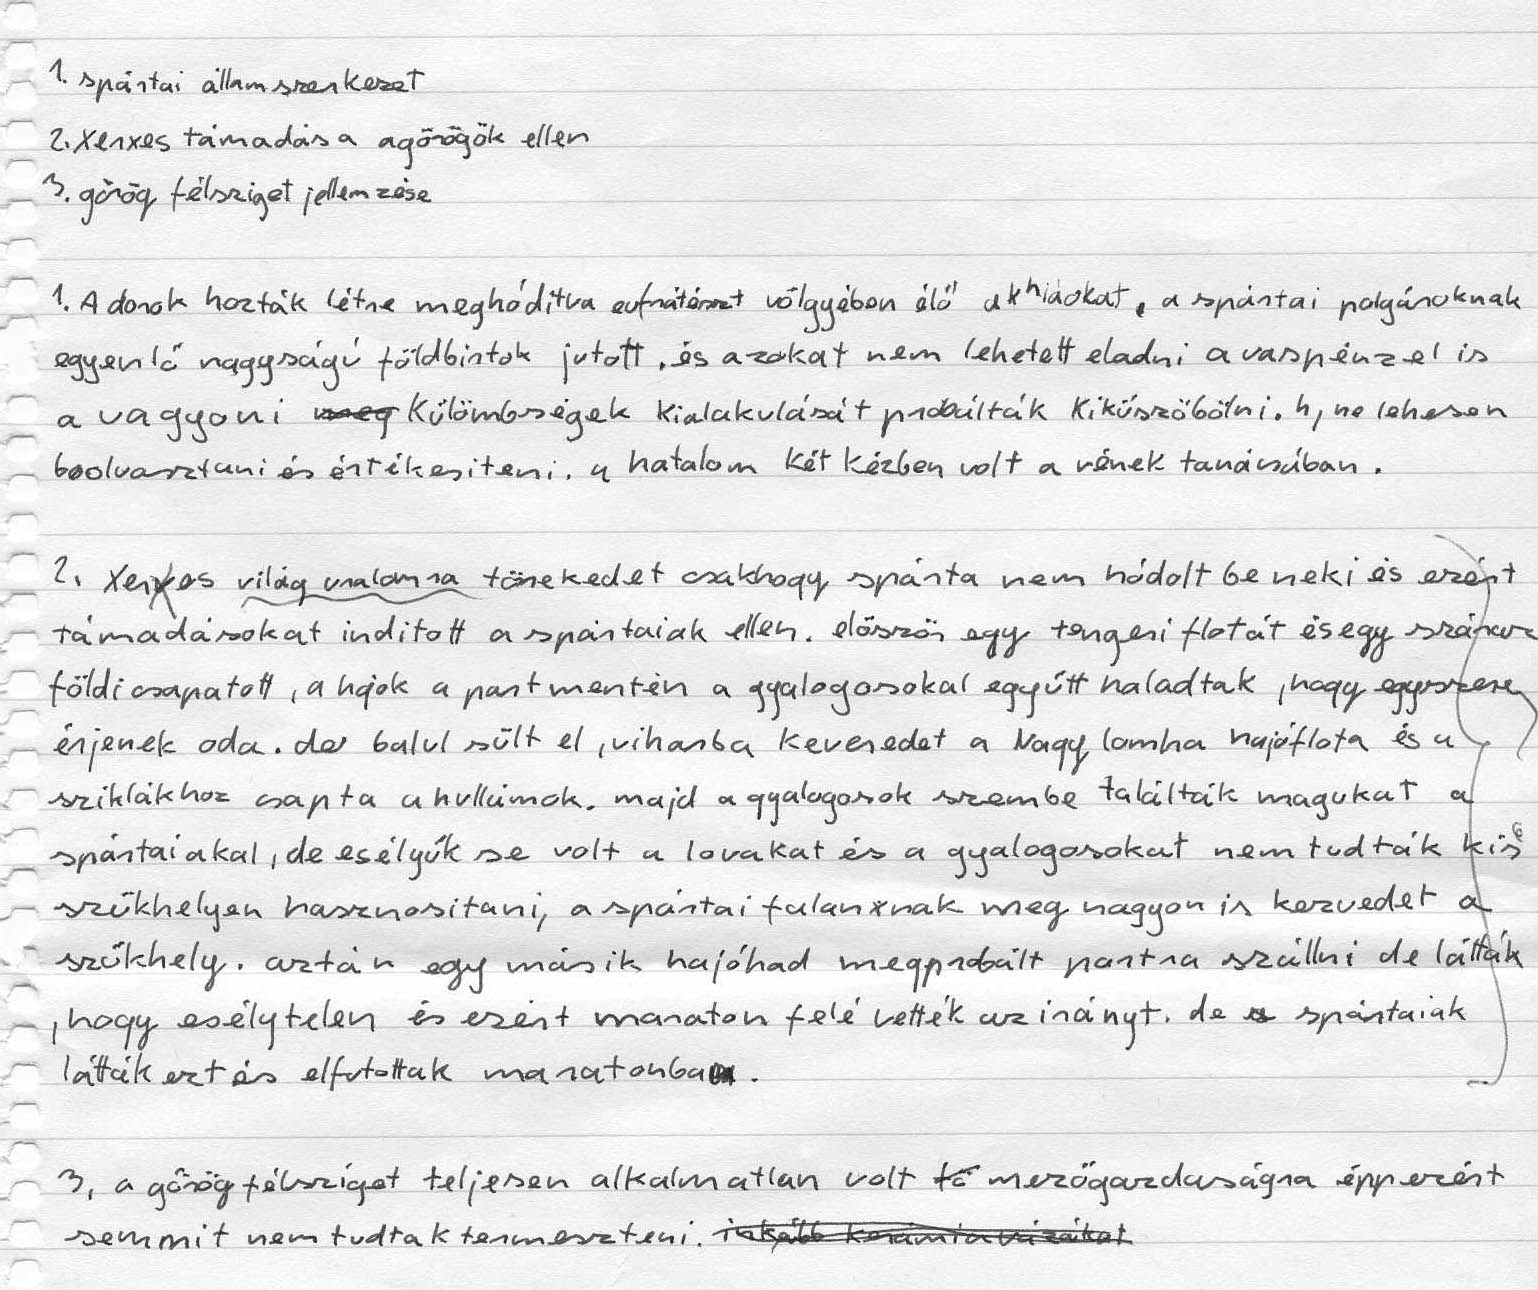 1. spártai államszerkezet
2. Xerxes támadása a görögök ellen
3. görög félsziget jellemzése
1. A dorok hozták létre meghódítva eufrátészt völgyében élő akhiáokat, a spártai polgároknak
egyenlő nagyságú földbirtok jutott. és azokat nem lehetett eladni a vaspénzel is
a vagyoni meg külömbségek kialakulását probálták kiküszöbölni. h, ne lehesen
beolvasztani és értékesiteni. a hatalom két kézben volt a vének tanácsában.
2. Xerxes világ uralomra törekedet csakhogy spárta nem hódolt be neki és ezért
támadásokat inditott a spártaiak ellen. először egy tengeri flotát és egy száraz
földi csapatott, a hajok a part mentén a gyalogosokal együtt haladtak, hogy egyszere
érjenek oda. de balul sült el, viharba keveredet a Nagy lomha hajóflota és a
sziklákhoz csapta a hullámok. majd a gyalogosok szembe találták magukat a
spártaiakal, de esélyük se volt a lovakat és a gyalogosokat nem tudták kis
szűkhelyen hasznositani, a spártai falanxnak meg nagyon is kezvedet a
szűkhely. aztán egy másik hajóhad megprobált partra szállni de látták
, hogy esélytelen és ezért maraton felé vették az irányt. de a spártaiak
látták ezt és elfutottak maratonba.
3, a görög félsziget teljesen alkalmatlan volt tö mezőgazdaságra épp ezért
semmit nem tudtak termeszteni. inkább kerámia vázákat